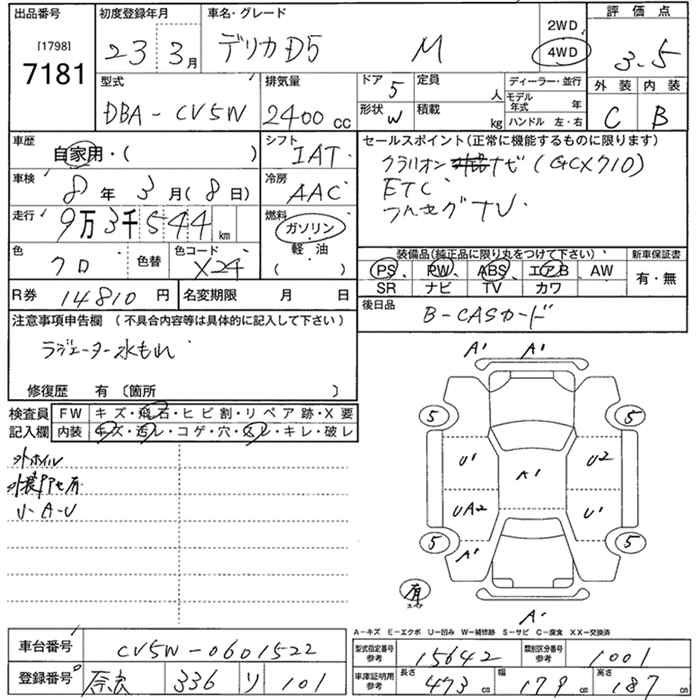 出品番号 初度登録年月 車名・グレード 2WD 評価点
[1798] 7181 23年 3月 デリカD5 M 4WD 3.5
型式 排気量 ドア 5 定員 人 ディーラー・並行 外装 内装
DBA-CV5W 2400cc 形状 W 積載 kg モデル年式 年 ハンドル 左・右 C B
車歴 自家用・( ) シフト IAT セールスポイント(正常に機能するものに限ります)
クラリオン ナビ(GCX710)
車検 8年 3月(8日) 冷房 AAC ETC
フルセグTV
走行 9万3千544km 燃料 ガソリン 軽・油 ( )
色 クロ 色替 色コード X24 装備品(純正品に限り丸をつけて下さい) 新車保証書
PS、PW、ABS、エアB、AW 有・無
SR ナビ TV カワ
R券 14810円 名変期限 月 日 後日品 B-CASカード
注意事項申告欄 (不具合内容等は具体的に記入して下さい)
ラジエーター水もれ
修復歴 有 〔箇所 〕
検査員 FW キズ・飛石・ヒビ割・リペア跡・X要
記入欄 内装 キズ・汚レ・コゲ・穴・スレ・キレ・破レ
外ホイル
U-A-U
A' A'
5 5
U' A' U2
UA2 U'
5 5
A'
有
A'
A-キズ E-エクボ U-凹み W-補修跡 S-サビ C-腐食 XX-交換済
車台番号 CV5W-0601522 型式指定番号 参考 15642 類別区分番号 参考 1001
登録番号 奈良 336 リ 101 車庫証明用 参考 長さ 473cm 幅 179cm 高さ 187cm